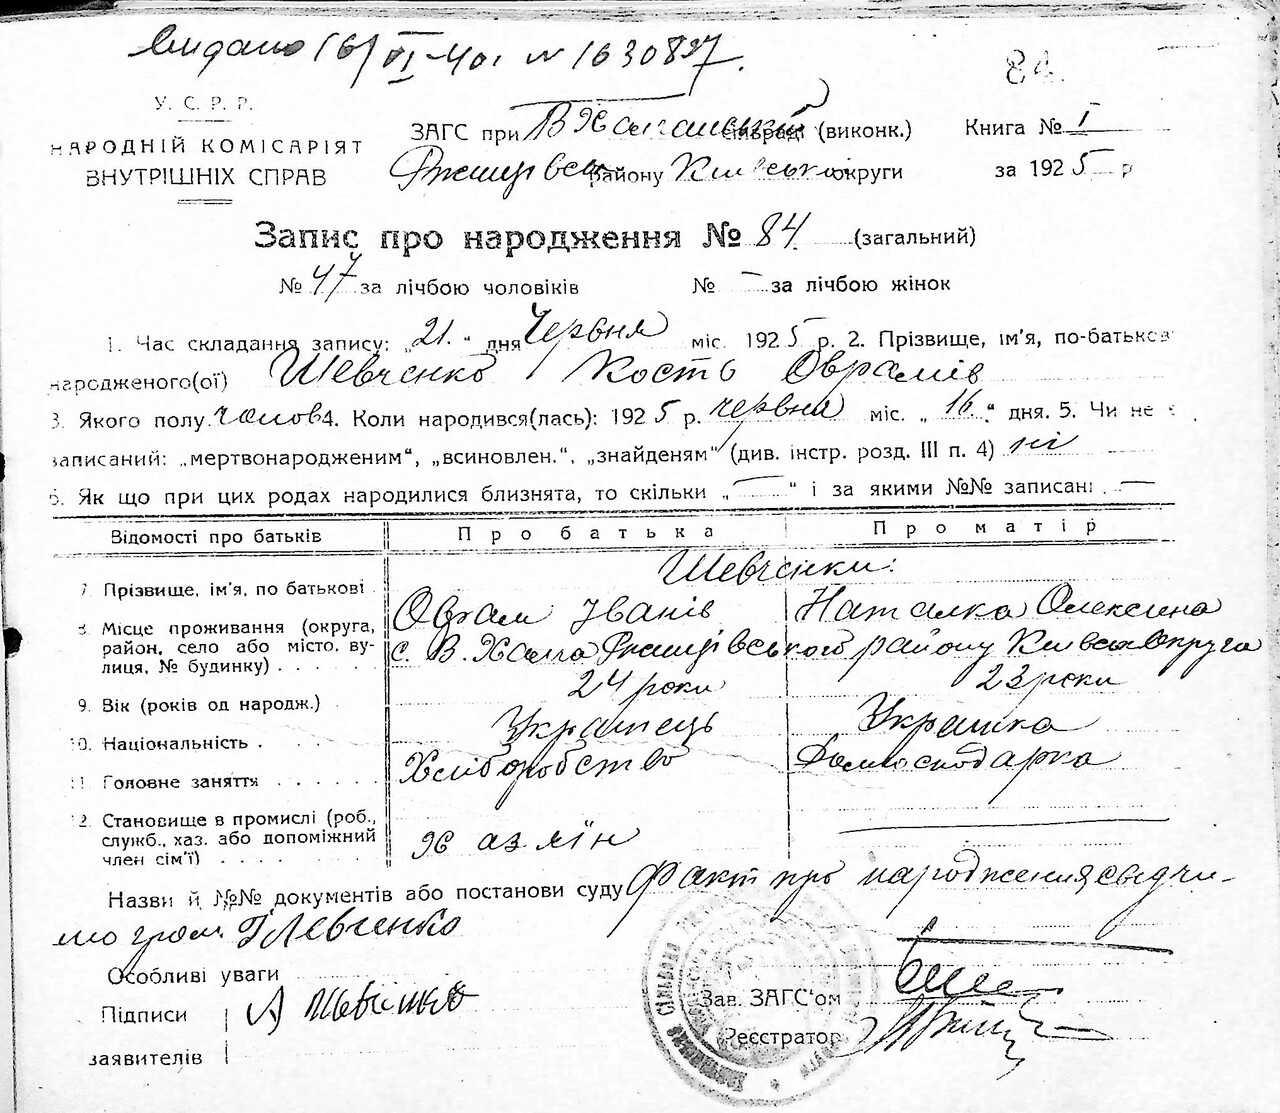 Видано 16/VI-40 і № 1630827.
84.
У. С. Р. Р.
НАРОДНІЙ КОМІСАРІЯТ
ВНУТРІШНІХ СПРАВ
ЗАГС при В Халчанській сільраді (виконк.) Книга № I
Ржищівськ району Київської округи за 1925 р
Запис про народження № 84. (загальний)
№ 47 за лічбою чоловіків № — за лічбою жінок
1. Час складання запису: „21.“ дня Червня міс. 1925 р. 2. Прізвище, ім'я, по-батькові
народженого(ої) Шевченко Кость Оврамів
3. Якого полу чолов 4. Коли народився(лась): 1925 р. червня міс. „16.“ дня. 5. Чи не є
записаний: „мертвонародженим“, „всиновлен.“, „знайденям“ (див. інстр. розд. III п. 4) ні
6. Як що при цих родах народилися близнята, то скільки „—“ і за якими №№ записані —
Відомості про батьків Про батька Про матір
Шевченки:
7. Прізвище, ім'я, по батькові Оврам Іванів Наталка Олексіїна
8. Місце проживання (округа, район, село або місто, вулиця, № будинку) с. В. Халча Ржищівського району Київськ Округа
9. Вік (років од народж.) 24 роки 23 роки
10. Національність Українець Українка
11. Головне заняття Хліборобство Домгосподарка
12. Становище в промислі (роб., служб., хаз. або допоміжний член сім'ї) Хазяїн
Назви й №№ документів або постанови суду Факт про народження свідчи-
мо гром.
Особливі уваги
Зав. ЗАГС'ом
Підписи
заявителів
А Шевченко
Реєстратор